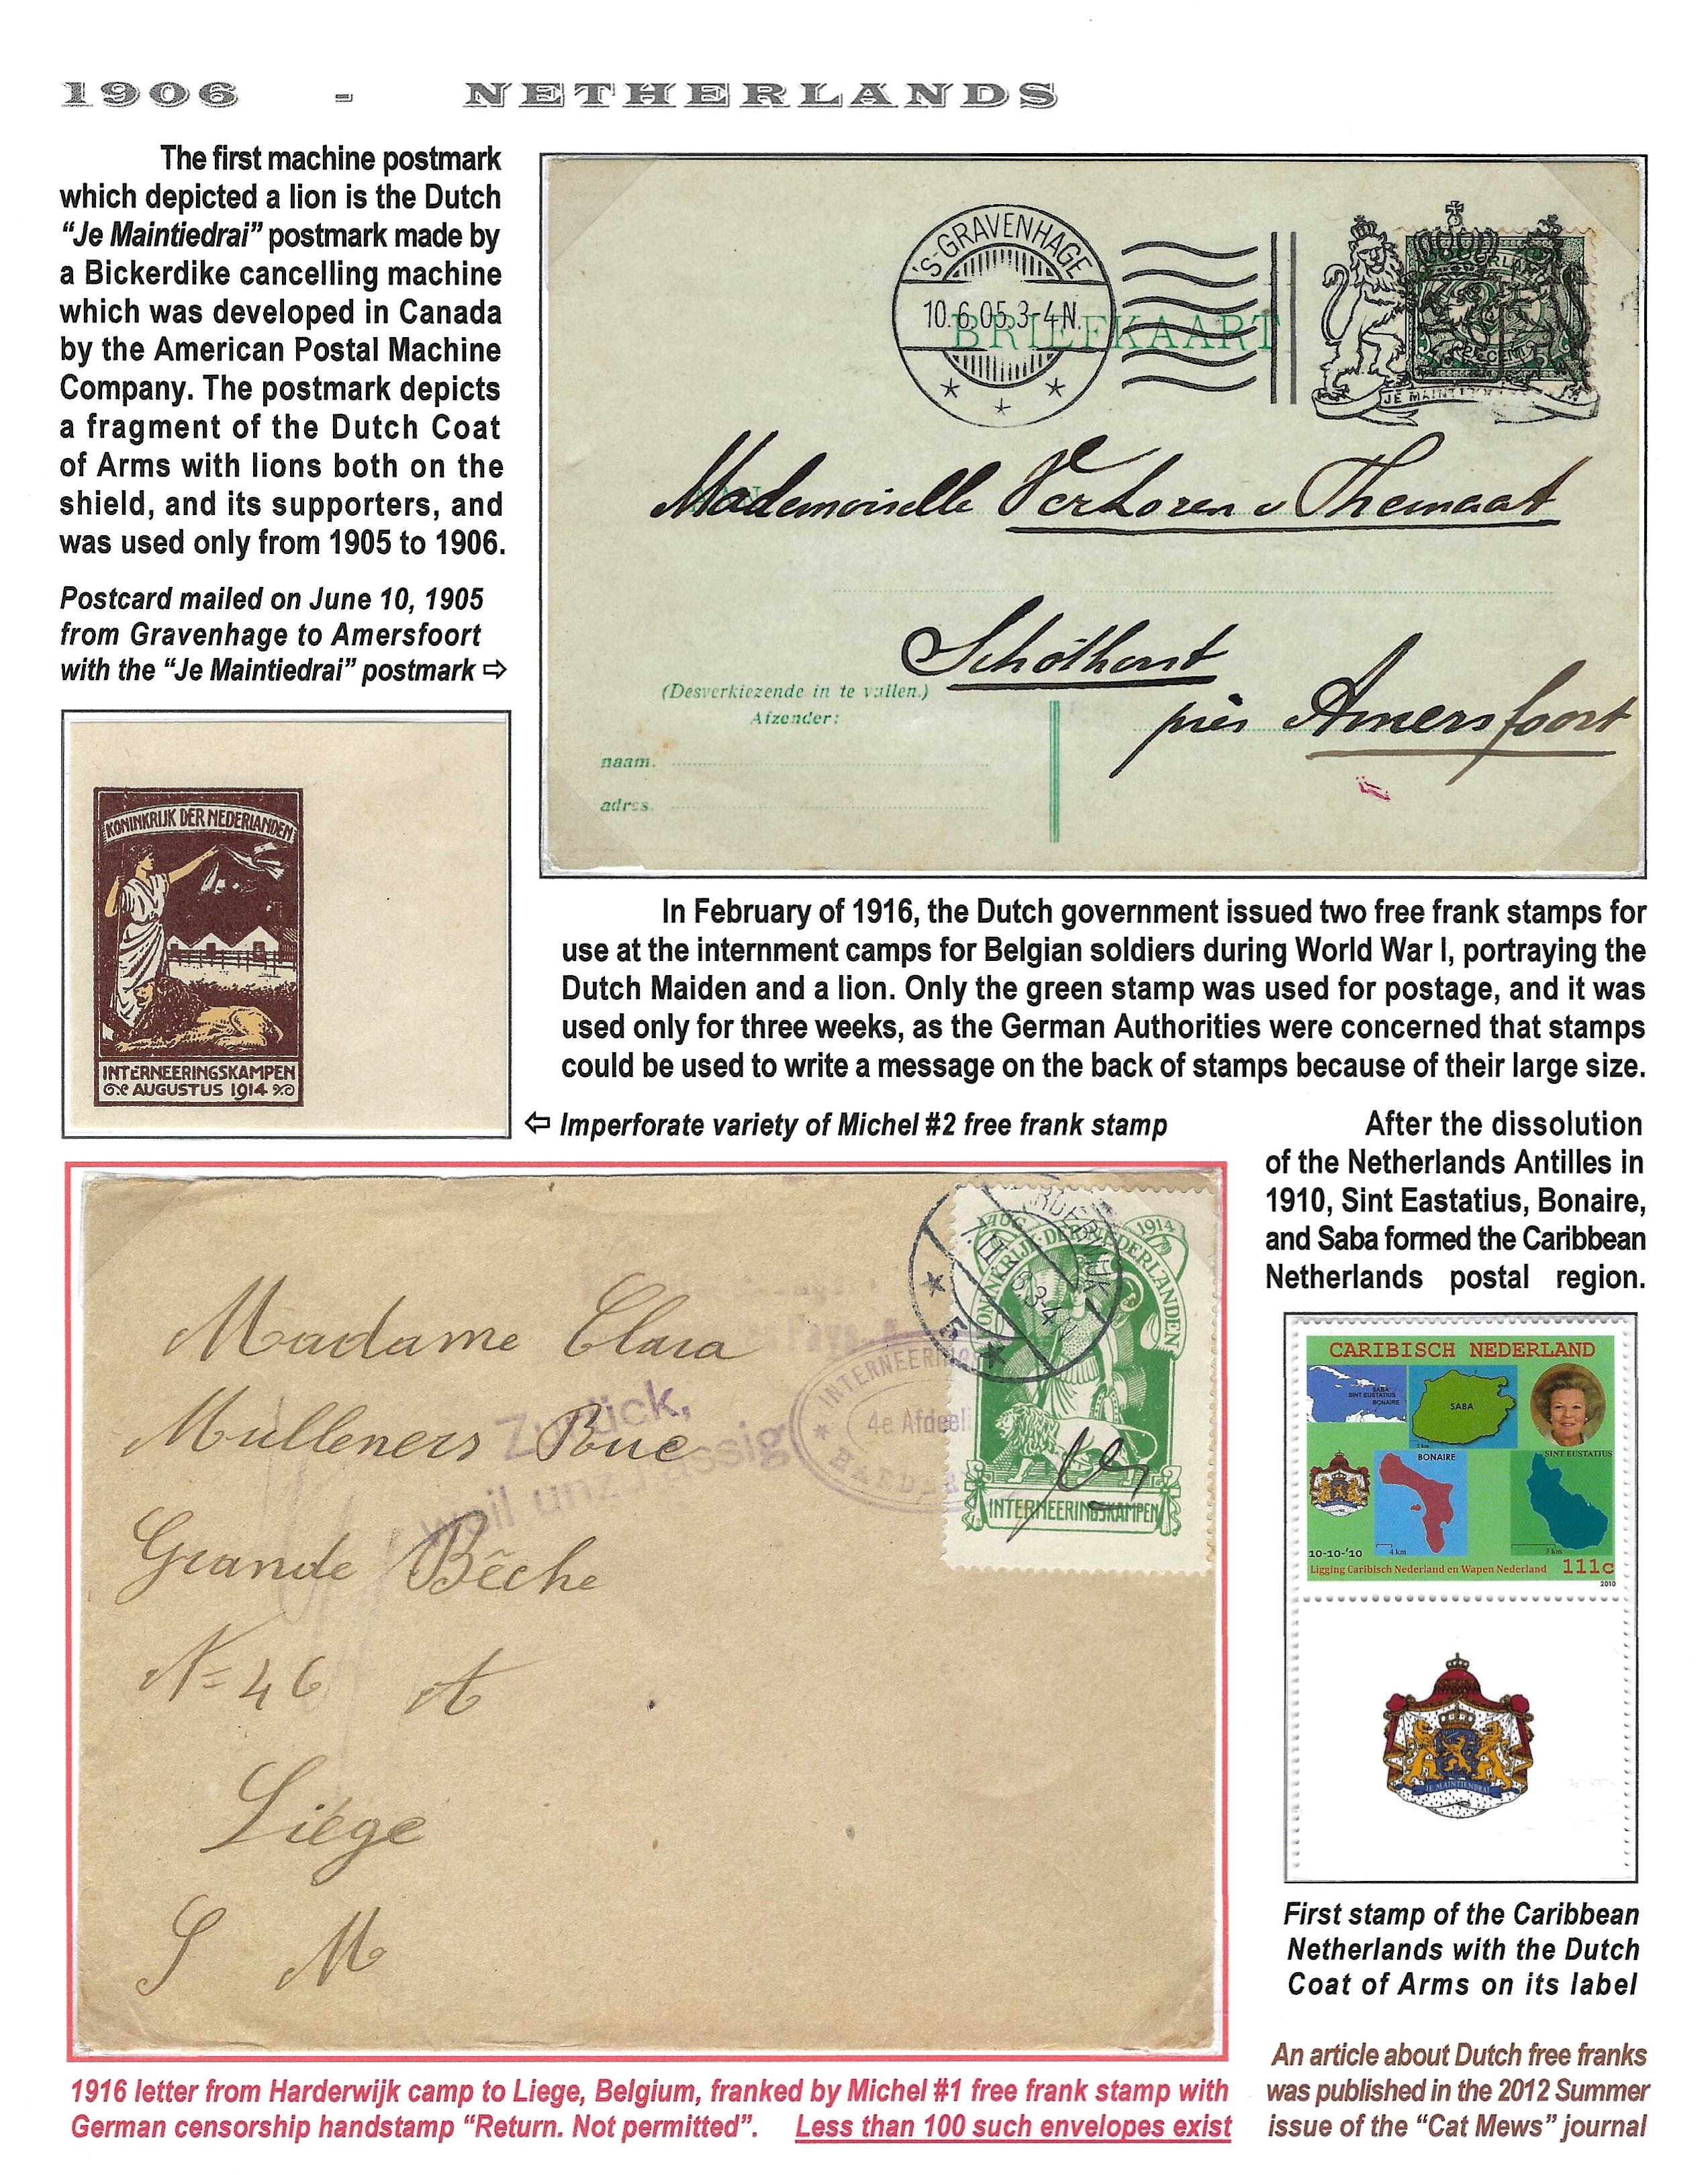 1906 - NETHERLANDS
The first machine postmark
which depicted a lion is the Dutch
“Je Maintiedrai” postmark made by
a Bickerdike cancelling machine
which was developed in Canada
by the American Postal Machine
Company. The postmark depicts
a fragment of the Dutch Coat
of Arms with lions both on the
shield, and its supporters, and
was used only from 1905 to 1906.
Postcard mailed on June 10, 1905
from Gravenhage to Amersfoort
with the “Je Maintiedrai” postmark ⇨
'S-GRAVENHAGE
10.6.05.3-4N.
BRIEFKAART
2½ CENT
JE MAINT
AAN
Mademoiselle Verloren v Themaat
Schothorst
près Amersfoort
(Desverkiezende in te vullen.)
Afzender:
naam.
adres.
KONINKRIJK DER NEDERLANDEN
INTERNEERINGSKAMPEN
AUGUSTUS 1914
In February of 1916, the Dutch government issued two free frank stamps for
use at the internment camps for Belgian soldiers during World War I, portraying the
Dutch Maiden and a lion. Only the green stamp was used for postage, and it was
used only for three weeks, as the German Authorities were concerned that stamps
could be used to write a message on the back of stamps because of their large size.
⇦ Imperforate variety of Michel #2 free frank stamp
After the dissolution
of the Netherlands Antilles in
1910, Sint Eastatius, Bonaire,
and Saba formed the Caribbean
Netherlands postal region.
AUG 1914
KONINKRIJK·DER·NEDERLANDEN
INTERNEERINGSKAMPEN
INTERNEERING
4e Afdeeli
Zurück,
weil unzulässig
Madame Clara
Mulleners Rue
Grande Bêche
N= 46 A
Liége
S M
CARIBISCH NEDERLAND
SABA
SINT EUSTATIUS
BONAIRE
SABA
SINT EUSTATIUS
BONAIRE
4 km
3 km
10-10-'10
Ligging Caribisch Nederland en Wapen Nederland 111c
2010
JE MAINTIENDRAI
First stamp of the Caribbean
Netherlands with the Dutch
Coat of Arms on its label
1916 letter from Harderwijk camp to Liege, Belgium, franked by Michel #1 free frank stamp with
German censorship handstamp “Return. Not permitted”. Less than 100 such envelopes exist
An article about Dutch free franks
was published in the 2012 Summer
issue of the “Cat Mews” journal